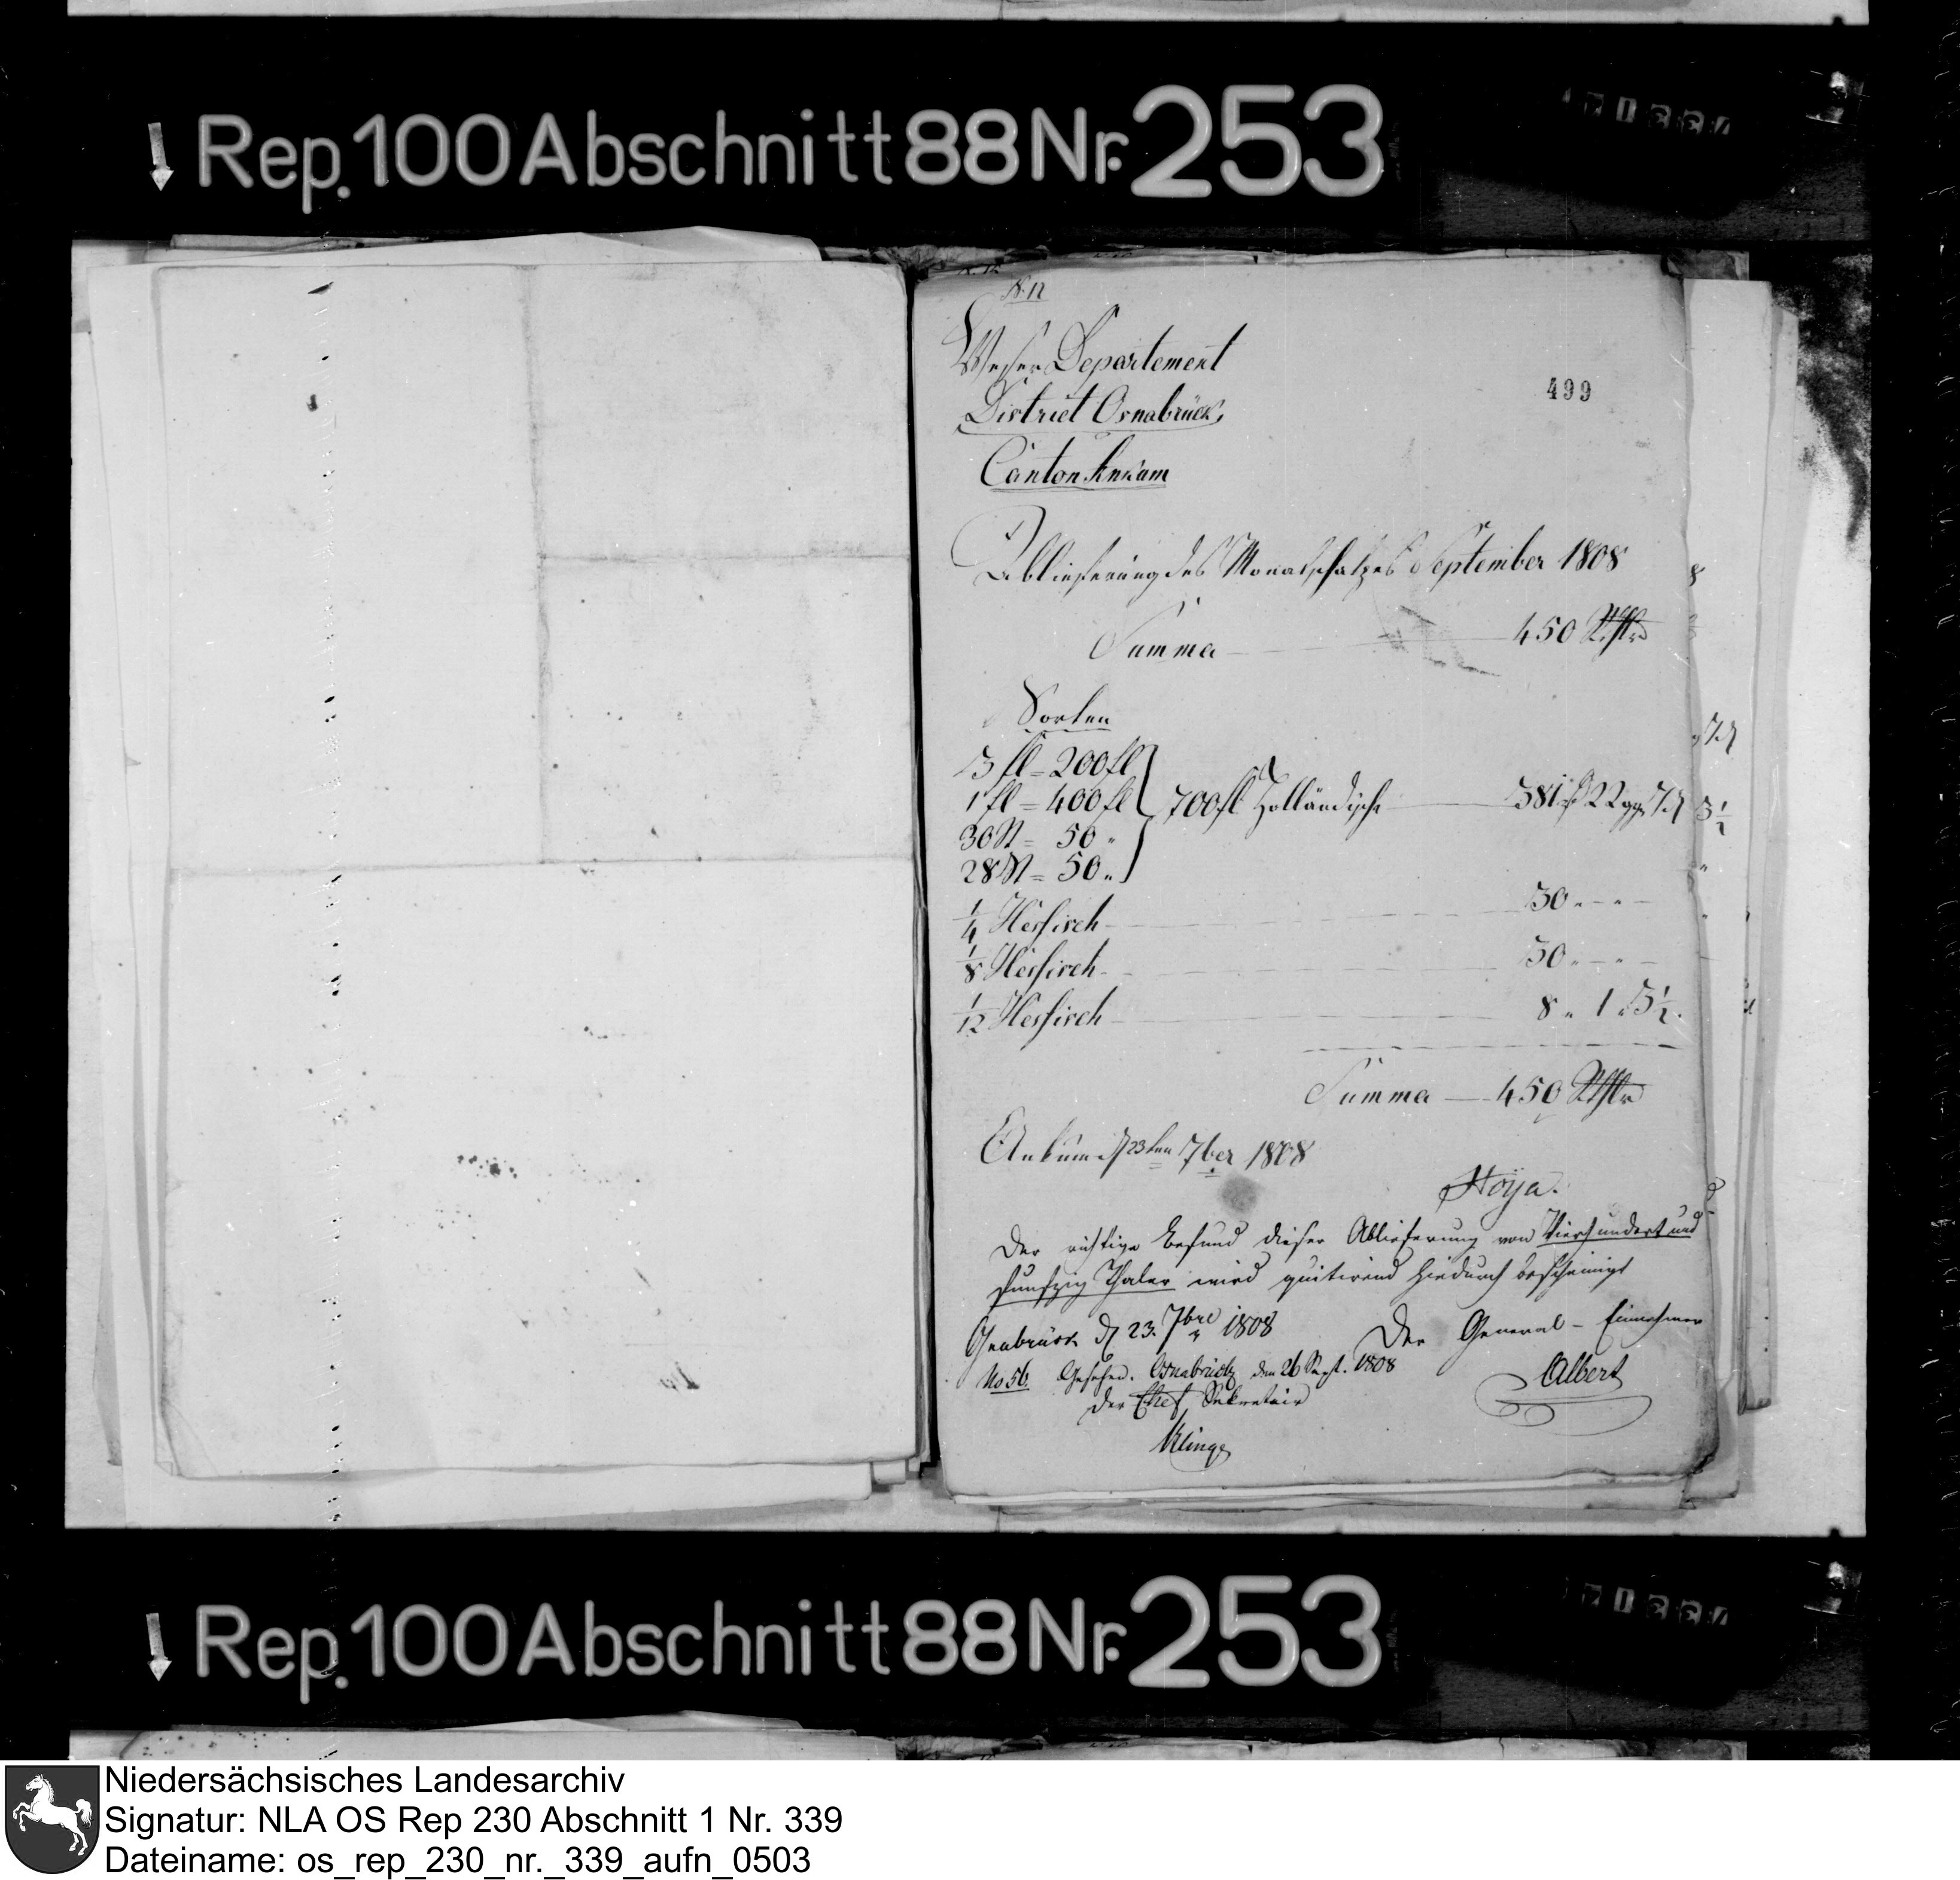 Rep. 100 Abschnitt 88 Nr. 253
N. 12
Weser Departement
499
District Osnabrück,
Canton Ankum
Ablieferung des Monatschatzes September 1808
Summa 450 Rthlr
Sorten
3 fl = 200 fl
1 fl = 400 fl
700 fl Holländische 381 rt 22 gg 7 d
30 St = 50 "
28 St = 50 "
1/4 Hessisch 30 " - " -
1/8 Hessisch 30 " - " -
1/12 Hessisch 8 " 1 " 3 1/2
Summa 450 Rthlr
Ankum d 23ten 7ber 1808
Hoya.
Der richtige Befund dieser Ablieferung von Vierhundert und
funfzig Thaler wird quitirend hiedurch bescheinigt
Osnabrück d 23. 7bre 1808
Der General-Einnehmer
Albert
No 56. Gesehen. Osnabrück den 26 Sept. 1808
Der Chef Sekretair
Klinge
Rep. 100 Abschnitt 88 Nr. 253
Niedersächsisches Landesarchiv
Signatur: NLA OS Rep 230 Abschnitt 1 Nr. 339
Dateiname: os_rep_230_nr._339_aufn_0503